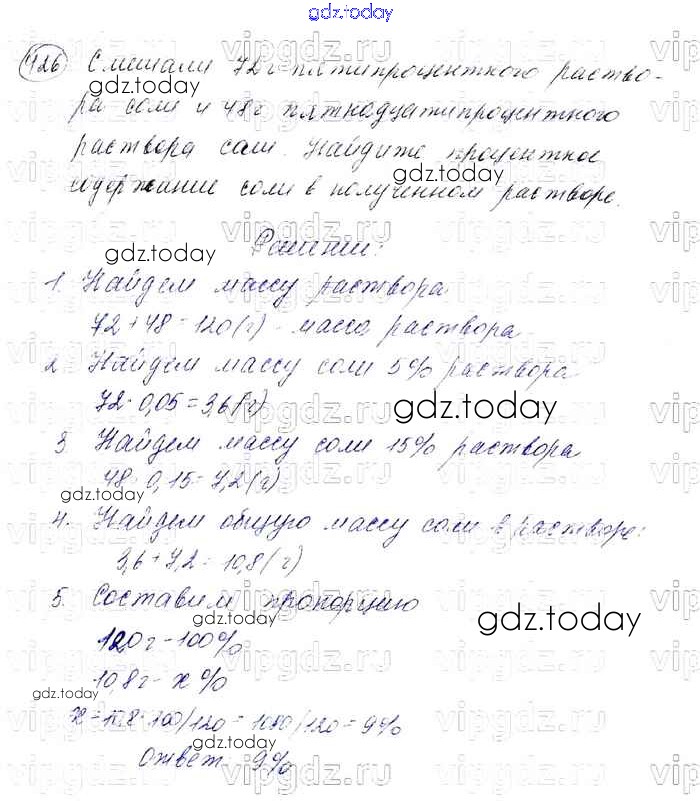 gdz.today
426 Смешали 72 г пятипроцентного раство-
ра соли и 48 г пятнадцатипроцентного
раствора соли. Найдите процентное
содержание соли в полученном растворе.
Решение:
1. Найдем массу раствора
72 + 48 = 120 (г) - масса раствора
2. Найдем массу соли 5% раствора
72 · 0,05 = 3,6 (г)
3 Найдем массу соли 15% раствора
48 · 0,15 = 7,2 (г)
4. Найдем общую массу соли в растворе:
3,6 + 7,2 = 10,8 (г)
5. Составим пропорцию
120 г - 100%
10,8 г - x %
x = 10,8 · 100/120 = 1080/120 = 9%
Ответ 9%